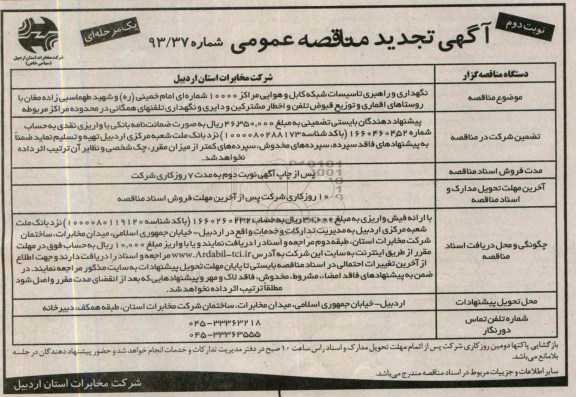 نوبت دوم
آگهی تجدید مناقصه عمومی شماره ۹۳/۳۷
یک مرحله‌ای
شرکت مخابرات استان اردبیل
(سهامی خاص)
دستگاه مناقصه گزار
شرکت مخابرات استان اردبیل
موضوع مناقصه
نگهداری و راهبری تاسیسات شبکه کابل و هوایی مراکز ۱۰۰۰۰ شماره‌ای امام خمینی (ره) و شهید طهماسبی زاده مغان با
روستاهای اقماری و توزیع قبوض تلفن و اخطار مشترکین و دایری و نگهداری تلفنهای همگانی در محدوده مراکز مربوطه
تضمین شرکت در مناقصه
پیشنهاد دهندگان بایستی تضمینی به مبلغ ۴۶,۳۵۰,۰۰۰ ریال به صورت ضمانت‌نامه بانکی یا واریزی نقدی به حساب
شماره ۱۶۶۰۴۶۰۴۵۲ (با کد شناسه ۱۰۰۰۰۰۸۰۲۸۸۱۷۳) نزد بانک ملت شعبه مرکزی اردبیل تهیه و تسلیم نماید ضمناً
به پیشنهادهای فاقد سپرده، سپرده‌های مخدوش، سپرده‌های کمتر از میزان مقرر، چک شخصی و نظایر آن ترتیب اثر داده
نخواهد شد.
مدت فروش اسناد مناقصه
پس از چاپ آگهی نوبت دوم به مدت ۷ روز کاری شرکت
آخرین مهلت تحویل مدارک و
اسناد مناقصه
۱۰ روز کاری شرکت پس از آخرین مهلت فروش اسناد مناقصه
چگونگی و محل دریافت اسناد
مناقصه
با ارائه فیش واریزی به مبلغ ۳۰۰,۰۰۰ ریال به حساب ۱۶۶۰۲۶۰۲۳۲ (با کد شناسه ۱۰۰۰۰۰۸۰۱۱۹۱۲۰) نزد بانک ملت
شعبه مرکزی اردبیل به مدیریت تدارکات و خدمات واقع در اردبیل - خیابان جمهوری اسلامی، میدان مخابرات، ساختمان
شرکت مخابرات استان، طبقه دوم مراجعه و اسناد را دریافت نمایند و یا با واریز مبلغ ۱۰,۰۰۰ ریال به حساب فوق در مهلت
مقرر از طریق اینترنت به سایت این شرکت به آدرس www.Ardabil-tci.ir مراجعه و اسناد را دریافت دارند و جهت اطلاع
از آخرین تغییرات احتمالی در اسناد مناقصه بایستی تا پایان مهلت تحویل پیشنهادات به سایت مذکور مراجعه نمایند. در
ضمن به پیشنهادهای فاقد امضا، مشروط، مخدوش، فاقد لاک و مهر و پیشنهادهایی که بعد از انقضای مدت مقرر واصل شود
مطلقاً ترتیب اثر داده نخواهد شد.
محل تحویل پیشنهادات
اردبیل - خیابان جمهوری اسلامی، میدان مخابرات، ساختمان شرکت مخابرات استان، طبقه همکف، دبیرخانه
شماره تلفن تماس
۰۴۵-۳۳۳۶۳۲۱۸
دورنگار
۰۴۵-۳۳۳۶۳۵۵۵
بازگشایی پاکتها دومین روز کاری شرکت پس از اتمام مهلت تحویل مدارک و اسناد راس ساعت ۱۰ صبح در دفتر مدیریت تدارکات و خدمات انجام خواهد شد و حضور پیشنهاد دهندگان در جلسه
بلامانع می‌باشد.
سایر اطلاعات و جزییات مربوط در اسناد مناقصه مندرج می‌باشد.
شرکت مخابرات استان اردبیل